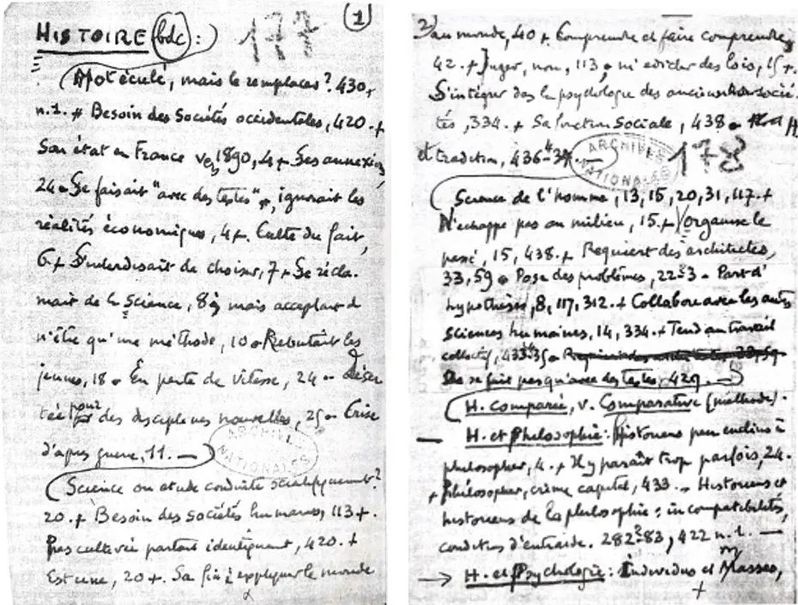 HISTOIRE bdc :)
177
1
Apotéculé, mais le remplacer? 430,
n.1. + Besoin des Sociétés occidentales, 420. +
Son état en France vers 1890, 4 + Ses annexions,
24 - Se faisait "avec des textes", ignorait les
réalités économiques, 4 +. Culte du fait,
6. + S'interdisait de choisir, 7 + Se récla-
mait de la Science, 8, mais acceptant d
n'être qu'une méthode, 10 - Rebutait les
jeunes, 18 - En perte de vitesse, 24 - Déser
tée pour des disciplines nouvelles, 25 - Crise
d'après guerre, 11. —
ARCHIVES NATIONALES
Science ou étude conduite scientifiquement?
20. + Besoin des Sociétés humaines, 113 +.
Pas cultivée partout identiquement, 420. +
Est une, 20 +. Sa fin : expliquer le monde
2
au monde, 40 + Comprendre et faire comprendre,
42. + Juger, non, 113, ni édicter des lois, 15 +.
S'intégrer dans la psychologie des anciennes socié
tés, 334. + Sa fonction Sociale, 438 -
et tradition, 436-37. —
ARCHIVES NATIONALES
178
Science de l'homme, 13, 15, 20, 31, 117. +
N'échappe pas au milieu, 15. + Organise le
passé, 15, 438. + Requiert des architectes,
33, 59 - Pose des problèmes, 22-3 - Part d'
hypothèses, 8, 117, 312. + Collabore avec les autres
Sciences humaines, 14, 334. + Tend au travail
collectif, 433-35 -
Ne se fait pas qu'avec des textes, 429. —
H. comparée, v. Comparative (méthode).
— H. et Philosophie: Historiens peu enclins à
philosopher, 4. + Il y paraît trop parfois, 24.
+ Philosopher, crime capital, 433. - Historiens et
historiens de la philosophie : incompatibilités,
conditions d'entraide. 282-83, 422 n. 1. —
→ H. et Psychologie: Individus et Masses,